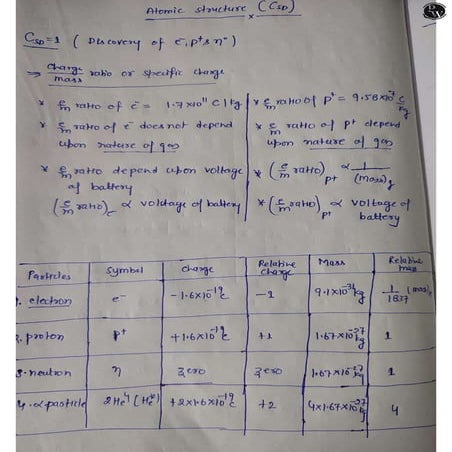 Atomic structure (CSD)
PW
CSD=1 ( Discovery of e⁻, p⁺ & n⁰ )
⇒ charge/mass ratio or specific charge
* e/m ratio of e⁻ = 1.7×10¹¹ C/kg
* e/m ratio of e⁻ does not depend
upon nature of gas
* e/m ratio depend upon voltage
of battery
(e/m ratio)e ∝ voldage of battery
* e/m ratio of p⁺ = 9.58×10⁷ C/kg
* e/m ratio of p⁺ depend
upon nature of gas
* (e/m ratio)p+ ∝ 1/(mass)g
* (e/m ratio)p+ ∝ voltage of
battery
Particles Symbol Charge Relative charge Mass Relative mass
1. electron e⁻ -1.6×10⁻¹⁹C -1 9.1×10⁻³¹kg 1/1837
2. proton p⁺ +1.6×10⁻¹⁹C +1 1.67×10⁻²⁷kg 1
3. neutron η zero zero 1.67×10⁻²⁷kg 1
4. α particle 2He⁴ +2×1.6×10⁻¹⁹C +2 4×1.67×10⁻²⁷kg 4